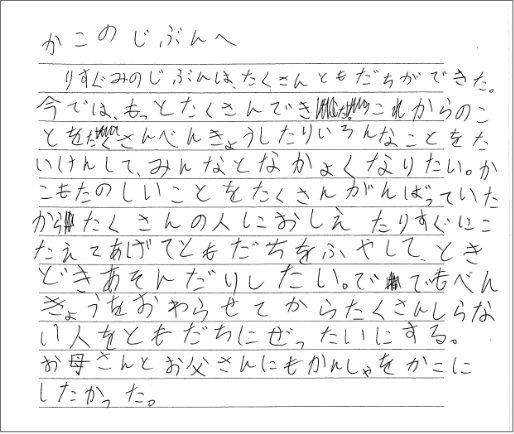 かこのじぶんへ
りすぐみのじぶんは、たくさんともだちができた。
今では、もっとたくさんでき これからのこ
とをたくさんべんきょうしたりいろんなことをた
いけんして、みんなとなかよくなりたい。か
こもたのしいことをたくさんがんばっていた
から たくさんの人におしえたりすぐにこ
たえてあげてともだちをふやして、とき
どきあそんだりしたい。で でもべん
きょうをおわらせてからたくさんしらな
い人をともだちにぜったいにする。
お母さんとお父さんにもかんしゃをかこに
したかった。